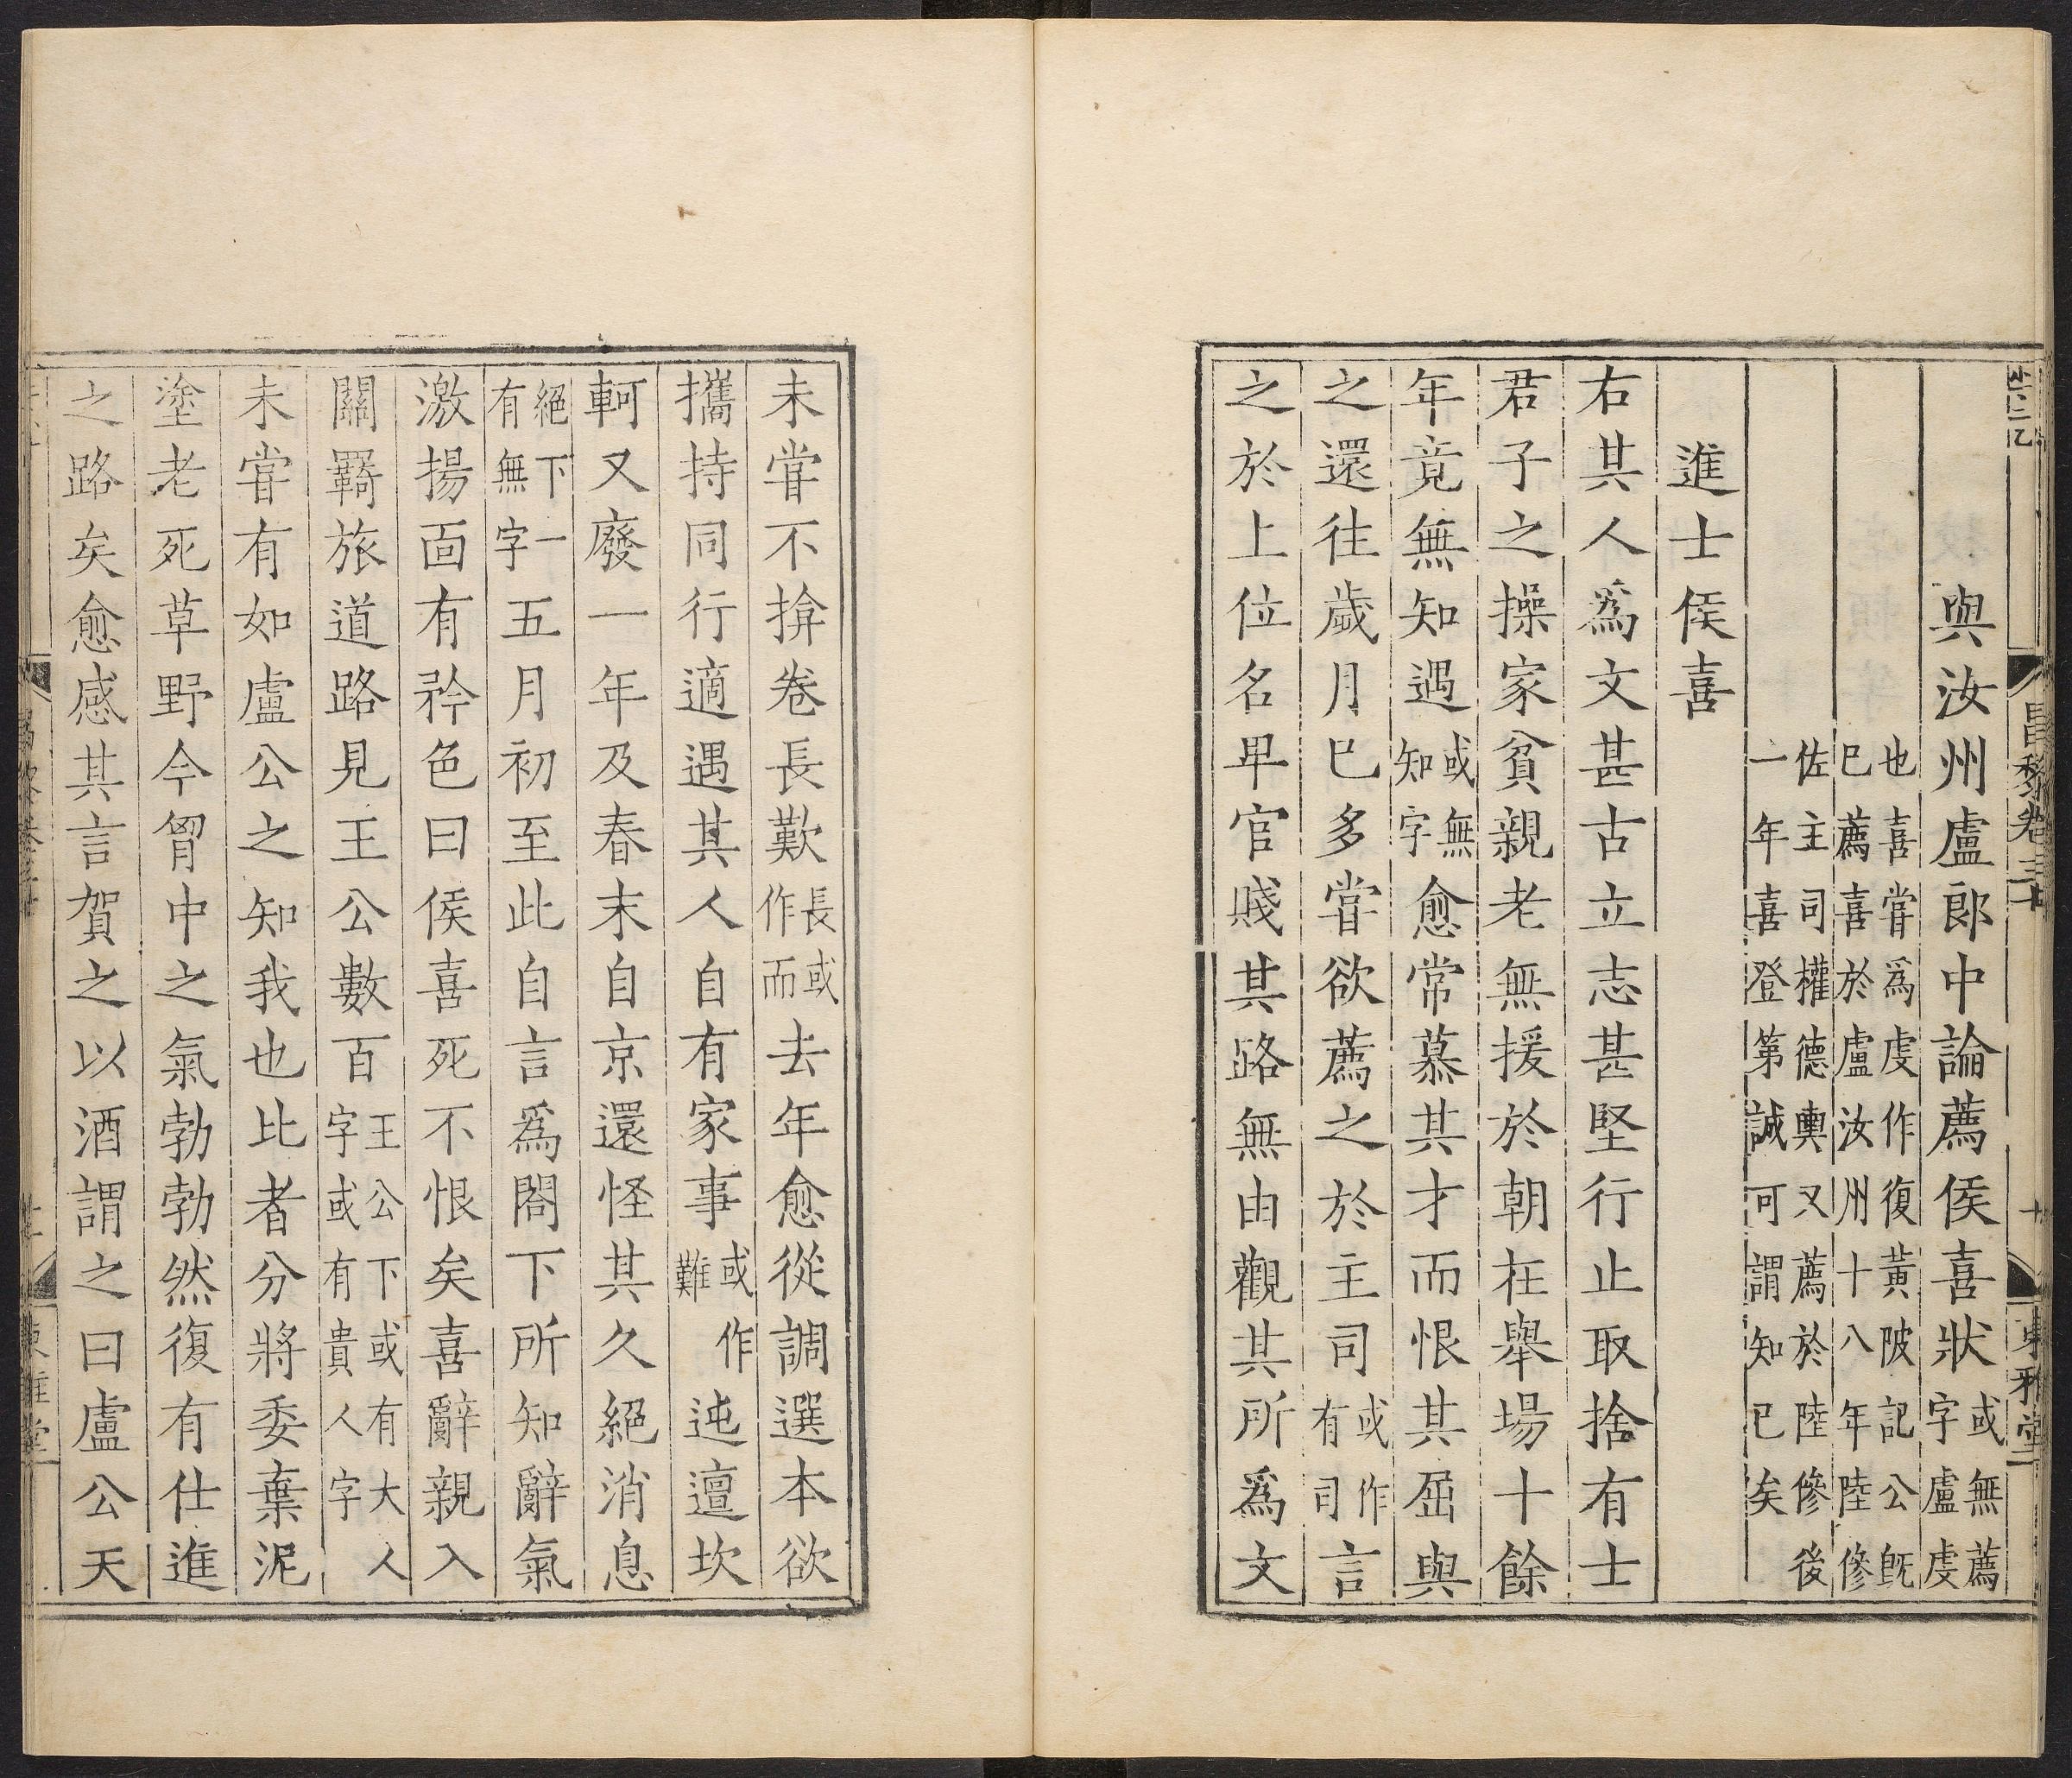 昌黎卷三十 十 東雅堂
與汝州盧郎中論薦侯喜狀或無薦字盧虔
也喜嘗爲虔作復黃陂記公既已薦喜於盧汝州十八年陸傪
佐主司權德輿又薦於陸傪後一年喜登第誠可謂知已矣
進士侯喜
右其人爲文甚古立志甚堅行止取捨有士
君子之操家貧親老無援於朝在舉場十餘
年竟無知遇或無知字愈常慕其才而恨其屈與
之還往歲月已多嘗欲薦之於主司或作有司言
之於上位名卑官賤其路無由觀其所爲文
未嘗不揜卷長歎長或作而去年愈從調選本欲
攜持同行適遇其人自有家事或作難迍邅坎
軻又廢一年及春末自京還怪其久絕消息
絕下一有無字五月初至此自言爲閤下所知辭氣
激揚面有矜色曰侯喜死不恨矣喜辭親入
關羇旅道路見王公數百王公下或有大人字或有貴人字
未嘗有如盧公之知我也比者分將委棄泥
塗老死草野今胷中之氣勃勃然復有仕進
之路矣愈感其言賀之以酒謂之曰盧公天
東雅堂